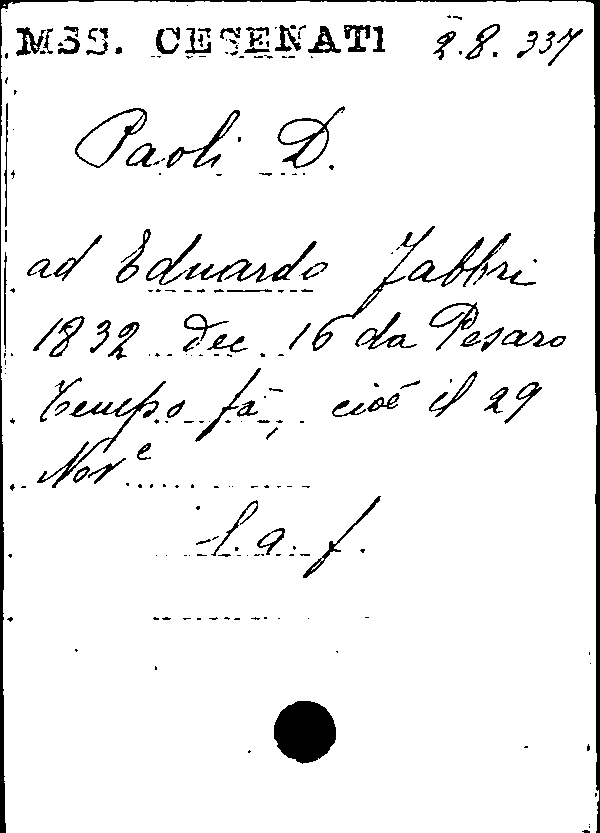 MSS. CESENATI 2.8.337
Paoli D.
ad Eduardo Fabbri
1832 dec. 16 da Pesaro
Tempo fà, cioè il 29
Nov.e
l. a. f.